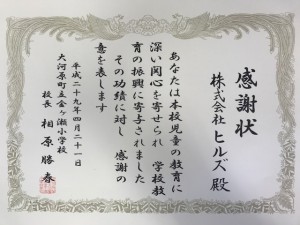 感謝状
株式会社 ヒルズ 殿
あなたは本校児童の教育に
深い関心を寄せられ 学校教
育の振興に寄与されました
その功績に対し 感謝の
意を表します
平成二十九年四月二十一日
大河原町立金ケ瀬小学校
校長 相原勝春